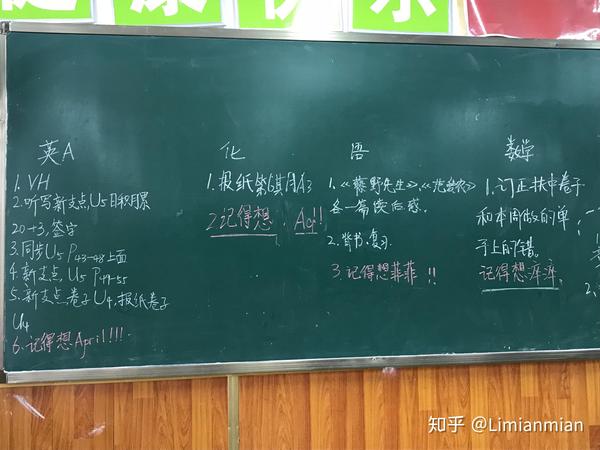 健康快乐
英A
1. VH
2. 听写新支点,U5日积月累
20→3,签字
3. 同步U5 P43-48上面
4. 新支点,U5 P49-55
5. 新支点卷子U4,报纸卷子
U4
6. 记得想April!!!!
化
1. 报纸第6期A3
2 记得想. Ag!!
语
1. 《藤野先生》、《范爱农》
各一篇读后感.
2. 背书、复习.
3. 记得想菲菲!!
数学
1. 订正扶中卷子
和本周做的单
子上的错.
记得想萍萍.
知乎 @Limianmian